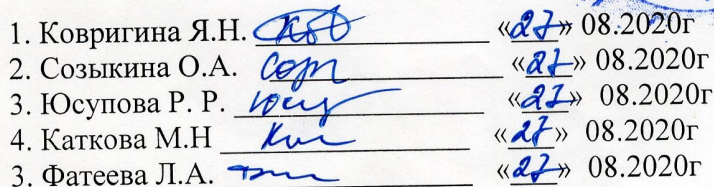 1. Ковригина Я.Н. «27» 08.2020г
2. Созыкина О.А. «27» 08.2020г
3. Юсупова Р. Р. «27» 08.2020г
4. Каткова М.Н «27» 08.2020г
3. Фатеева Л.А. «27» 08.2020г